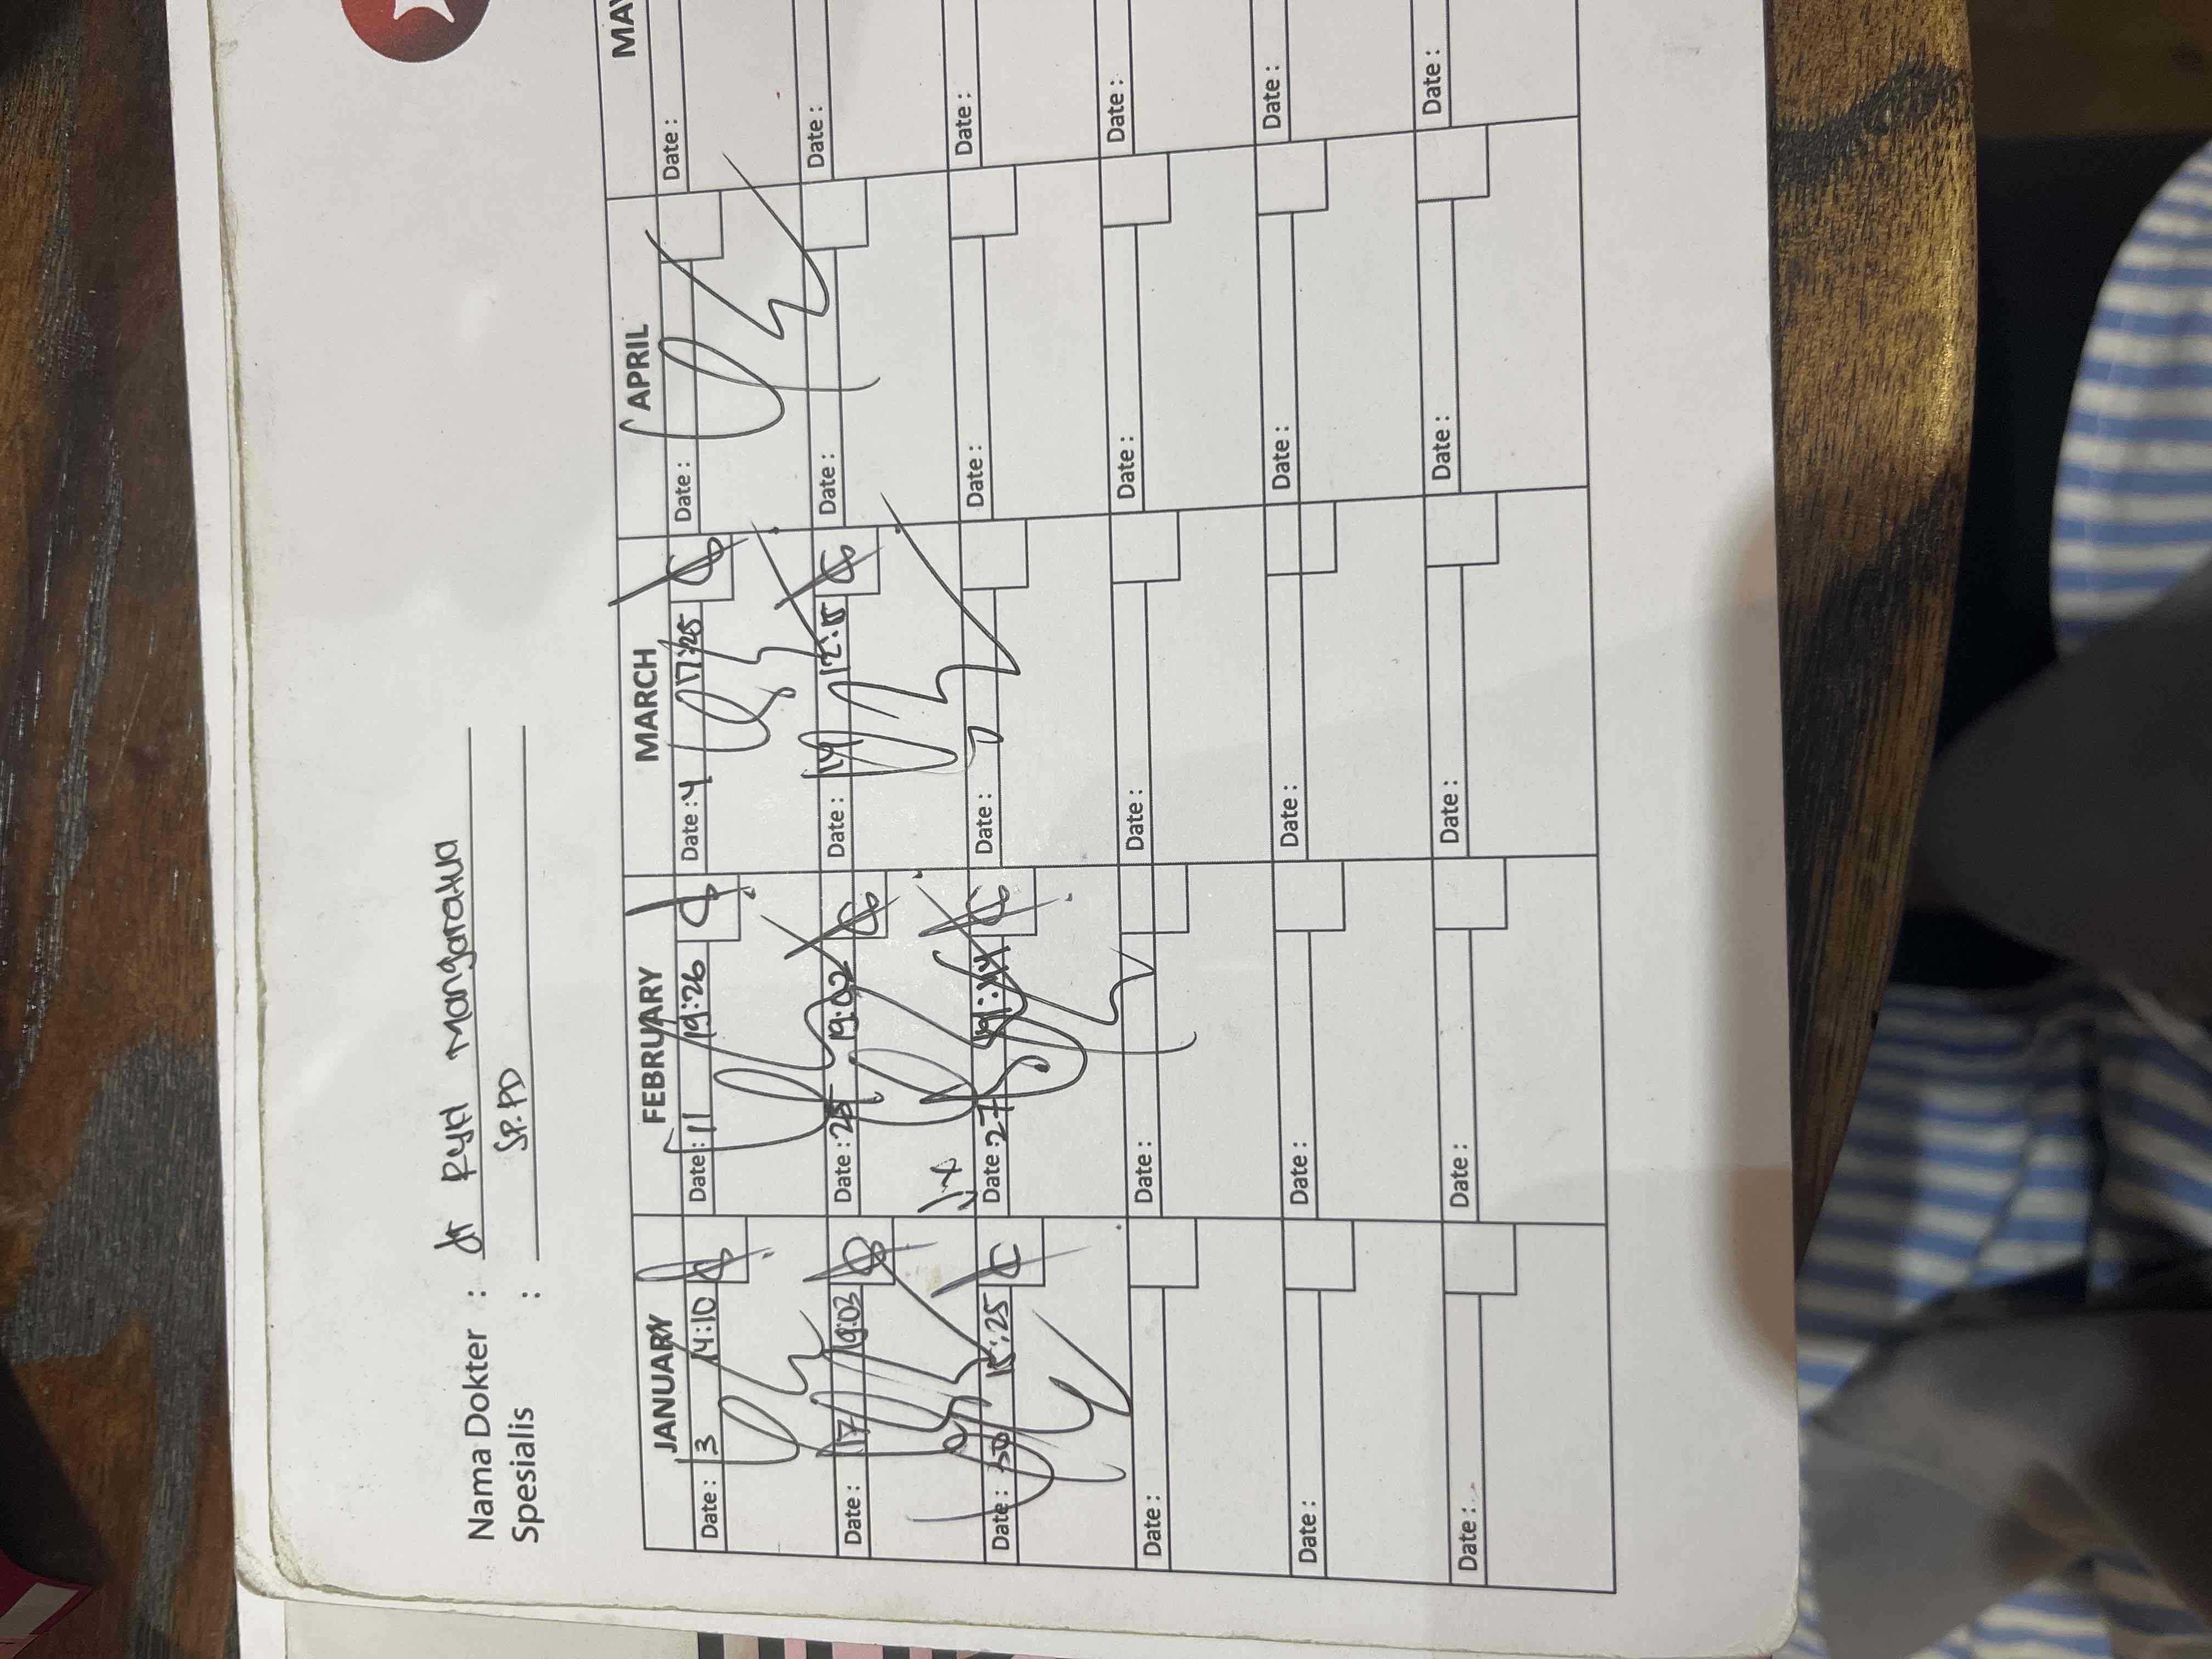 Nama Dokter : dr Ryad Mangaratua
Spesialis : SP.PD
JANUARY FEBRUARY MARCH APRIL
Date : 13 14:10 Date : 11 19:26 Date : 4 17:25 Date : Date :
Date : 17 19:03 Date : 25 19:02 Date : 19 12:15 Date : Date :
Date : 30 15:25 Date : 27 Date : Date : Date :
Date : Date : Date : Date : Date :
Date : Date : Date : Date : Date :
Date : Date : Date : Date : Date :